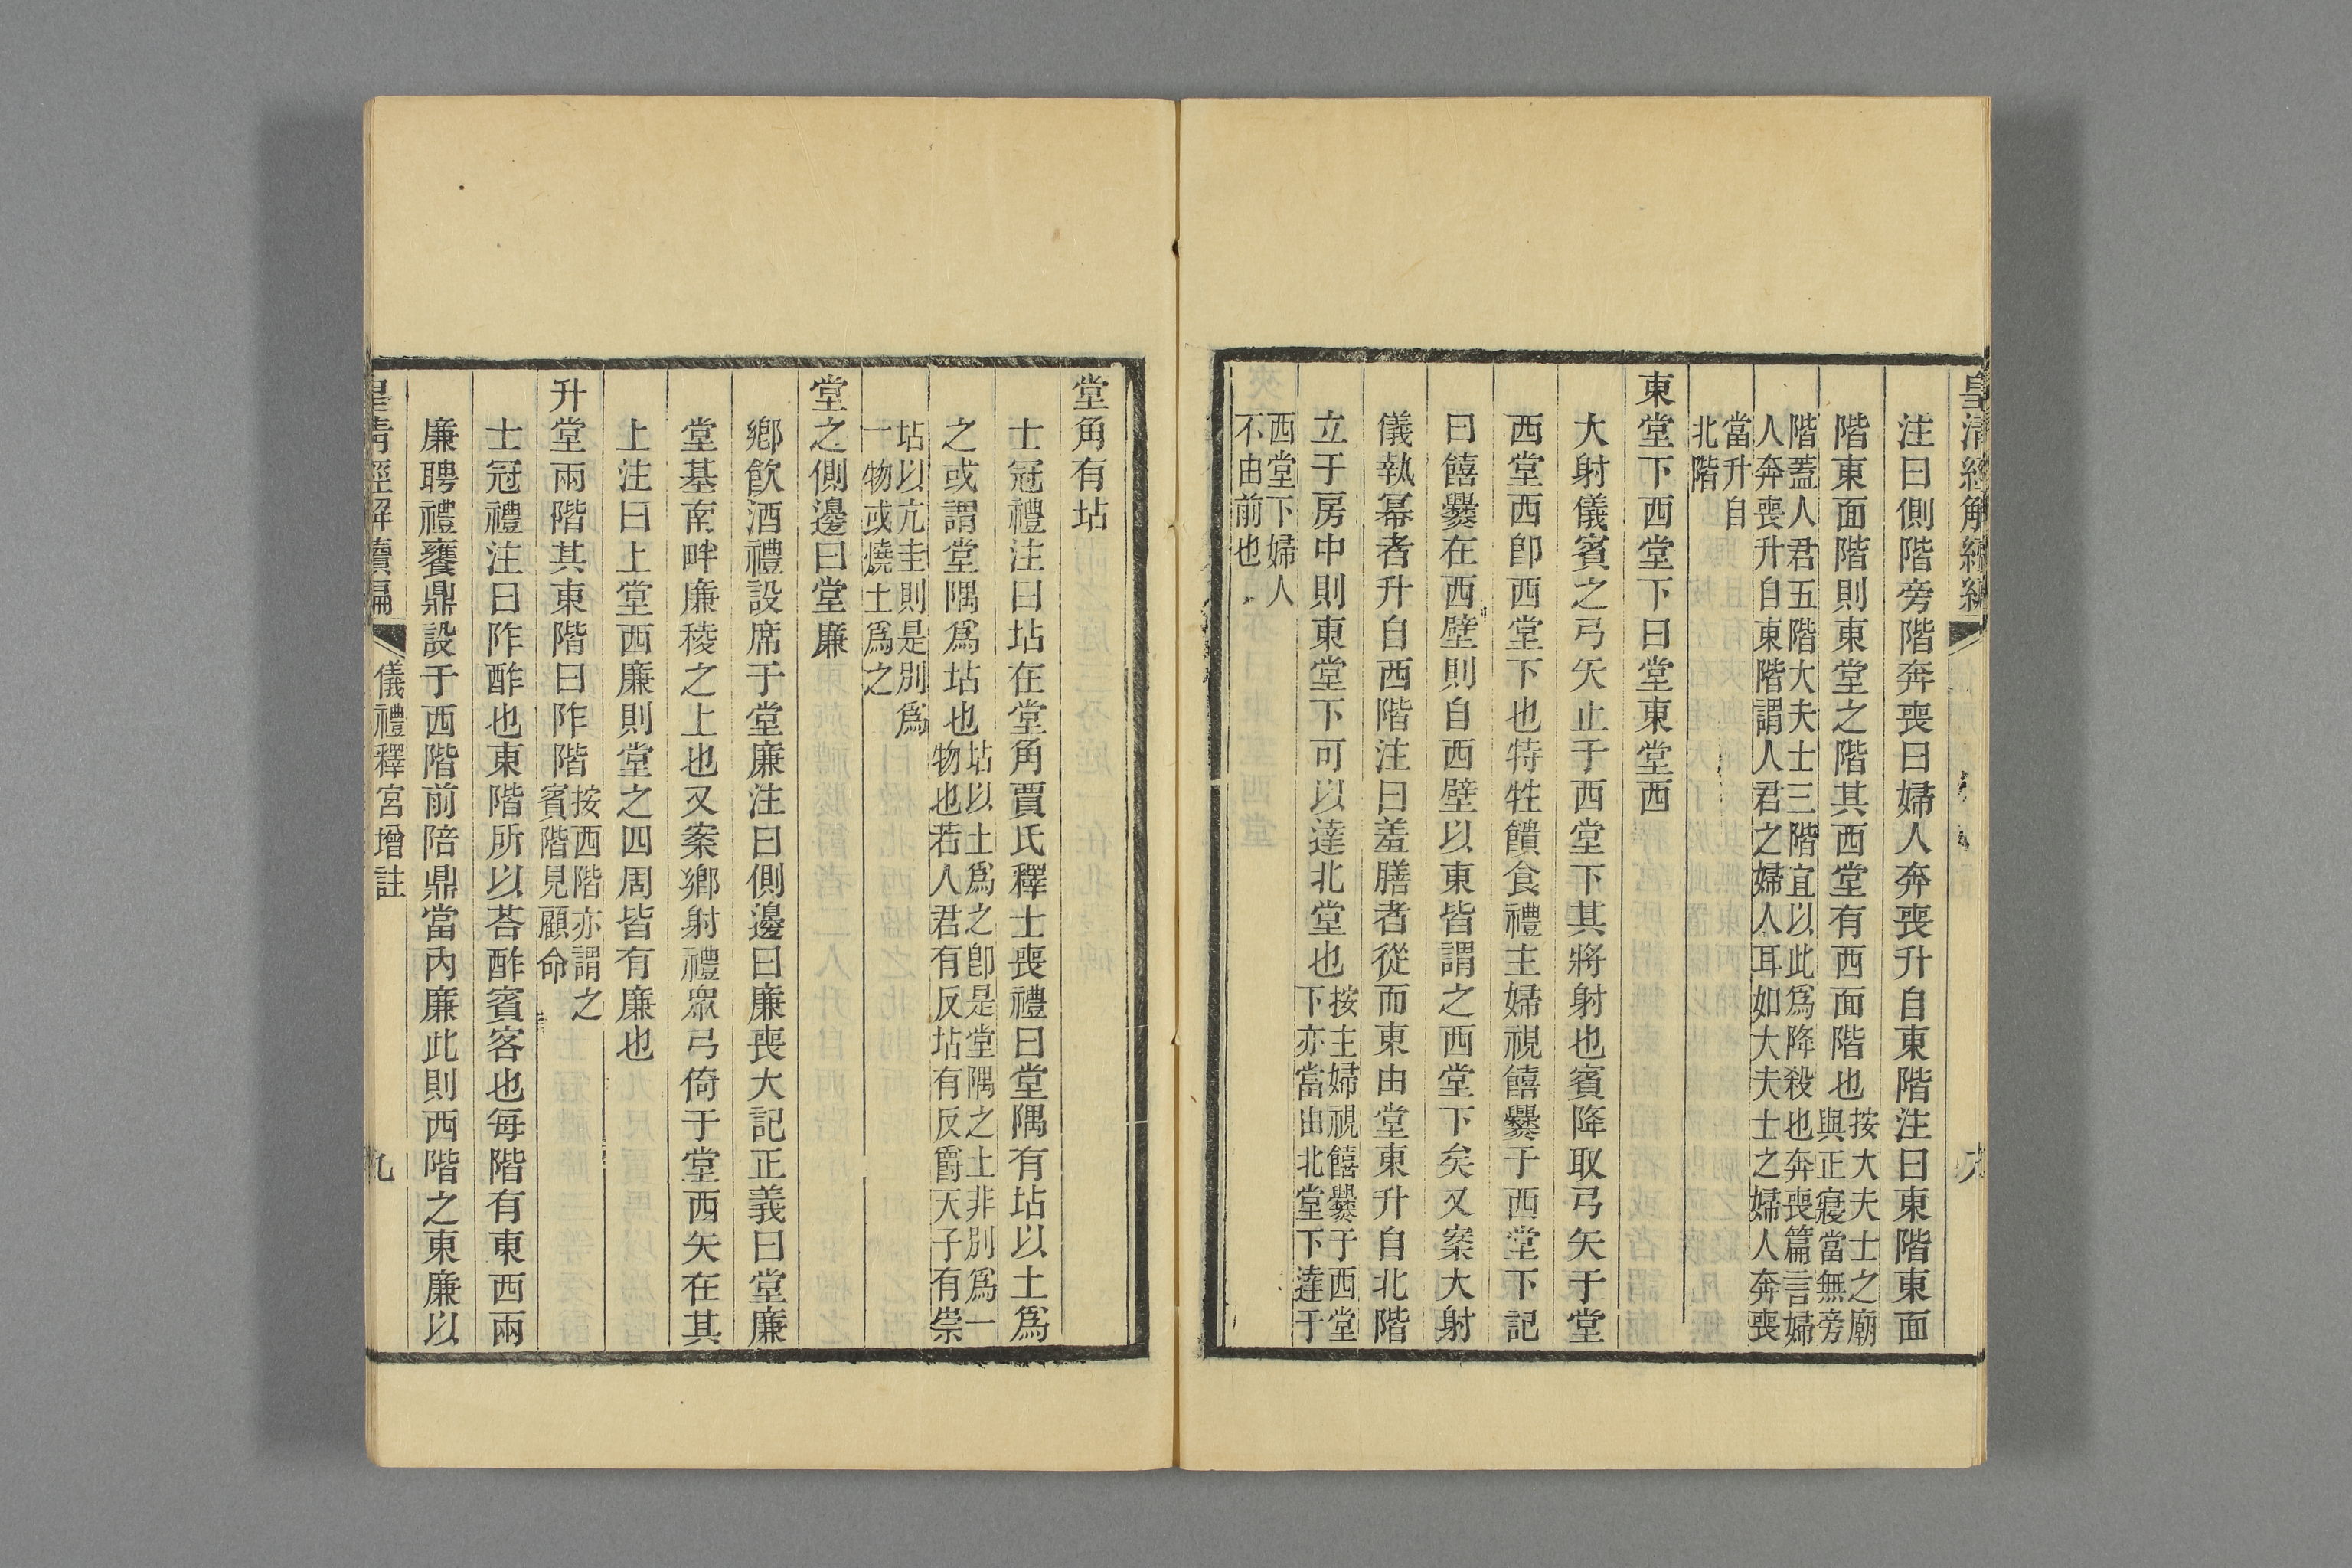 注曰側階旁階奔喪曰婦人奔喪升自東階注曰東階東面
階東面階則東堂之階其西堂有西面階也按大夫士之廟
與正寢當無旁
階蓋人君五階大夫士三階宜以此爲降殺也奔喪篇言婦
人奔喪升自東階謂人君之婦人耳如大夫士之婦人奔喪
當升自
北階
東堂下西堂下曰堂東堂西
大射儀賓之弓矢止于西堂下其將射也賓降取弓矢于堂
西堂西卽西堂下也特牲饋食禮主婦視饎爨于西堂下記
曰饎爨在西壁則自西壁以東皆謂之西堂下矣又案大射
儀執冪者升自西階注曰羞膳者從而東由堂東升自北階
立于房中則東堂下可以達北堂也按主婦視饎爨于西堂
下亦當由北堂下達于
西堂下婦人
不由前也
堂角有坫
士冠禮注曰坫在堂角賈氏釋士喪禮曰堂隅有坫以土爲
之或謂堂隅爲坫也坫以土爲之卽是堂隅之土非別爲一
物也若人君有反坫有反爵天子有崇
坫以亢圭則是別爲
一物或燒土爲之
堂之側邊曰堂廉
鄉飮酒禮設席于堂廉注曰側邊曰廉喪大記正義曰堂廉
堂基南畔廉稜之上也又案鄉射禮眾弓倚于堂西矢在其
上注曰上堂西廉則堂之四周皆有廉也
升堂兩階其東階曰阼階按西階亦謂之
賓階見顧命
士冠禮注曰阼酢也東階所以荅酢賓客也每階有東西兩
廉聘禮饔鼎設于西階前陪鼎當內廉此則西階之東廉以
皇清經解續編
儀禮釋宮增註
九